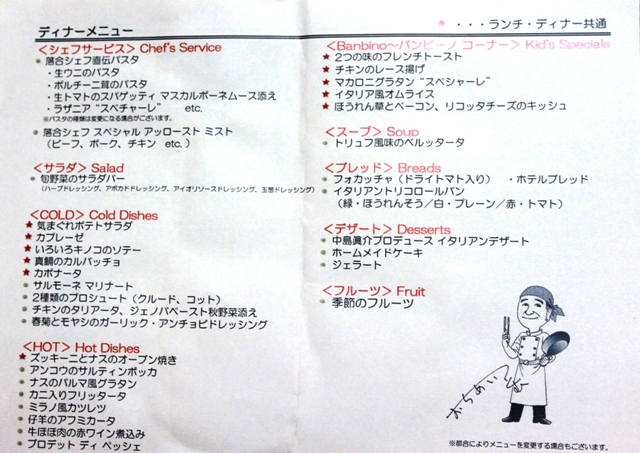 ディナーメニュー
★・・・ランチ・ディナー共通
<シェフサービス> Chef's Service
● 落合シェフ直伝パスタ
・生ウニのパスタ
・ポルチーニ茸のパスタ
・生トマトのスパゲッティ マスカルポーネムース添え
・ラザニア“スペチャーレ” etc.
※パスタの種類は変更になる場合がございます。
● 落合シェフ スペシャル アッロースト ミスト
(ビーフ、ポーク、チキン etc.)
<サラダ> Salad
● 旬野菜のサラダバー
(ハーブドレッシング、アボカドドレッシング、アイオリソースドレッシング、玉葱ドレッシング)
<COLD> Cold Dishes
★ 気まぐれポテトサラダ
★ カプレーゼ
★ いろいろキノコのソテー
★ 真鯛のカルパッチョ
★ カポナータ
● サルモーネ マリナート
● 2種類のプロシュート(クルード、コット)
● チキンのタリアータ、ジェノバペースト秋野菜添え
● 春菊とモヤシのガーリック・アンチョビドレッシング
<HOT> Hot Dishes
★ ズッキーニとナスのオーブン焼き
● アンコウのサルティンボッカ
● ナスのパルマ風グラタン
● カニ入りフリッタータ
● ミラノ風カツレツ
● 仔羊のアフミカータ
● 牛ほほ肉の赤ワイン煮込み
● ブロデット ディ ペッシェ
<Banbino～バンビーノ コーナー> Kid's Specials
★ 2つの味のフレンチトースト
★ チキンのレース揚げ
★ マカロニグラタン“スペシャーレ”
★ イタリア風オムライス
★ ほうれん草とベーコン、リコッタチーズのキッシュ
<スープ> Soup
● トリュフ風味のベルッタータ
<ブレッド> Breads
● フォカッチャ(ドライトマト入り) ・ホテルブレッド
● イタリアントリコロールパン
(緑・ほうれんそう/白・プレーン/赤・トマト)
<デザート> Desserts
● 中島眞介プロデュース イタリアンデザート
● ホームメイドケーキ
● ジェラート
<フルーツ> Fruit
● 季節のフルーツ
おちあいつとむ
※都合によりメニューを変更する場合もございます。